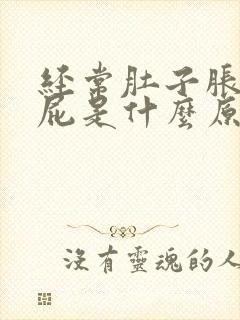 經常肚子脹
屁是什麼原
沒有靈魂的人